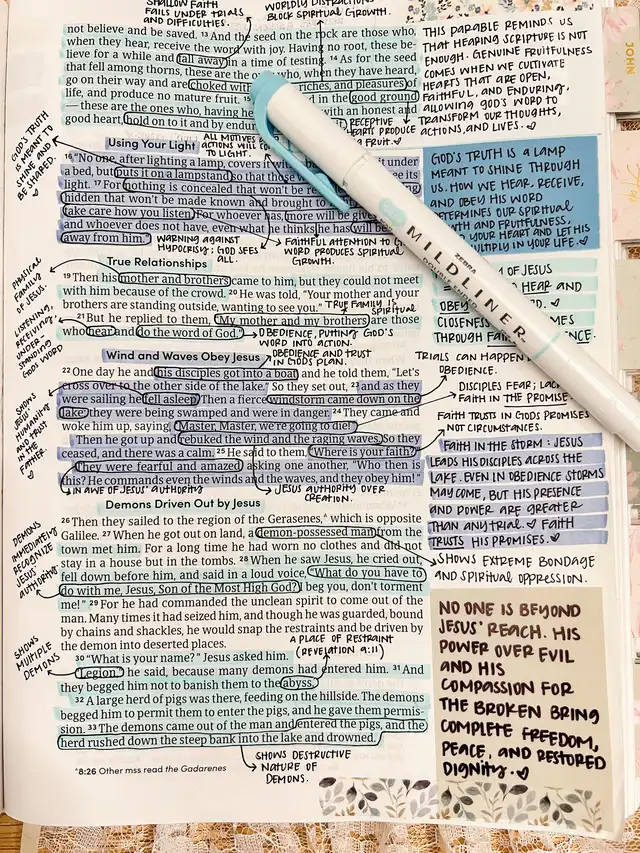 SHALLOW FAITH
FAILS UNDER TRIALS
AND DIFFICULTIES.
WORLDLY DISTRACTIONS
BLOCK SPIRITUAL GROWTH.
not believe and be saved. 13 And the seed on the rock are those who,
when they hear, receive the word with joy. Having no root, these be-
lieve for a while and fall away in a time of testing. 14 As for the seed
that fell among thorns, these are the who, when they have heard,
go on their way and are choked with riches, and pleasures of
life, and produce no mature fruit. in the good ground
— these are the ones who, having he with an honest and
good heart, hold on to it and by endur
RECEPTIVE
HEARTS PRODUCE
FRUIT. ♡
THIS PARABLE REMINDS US
THAT HEARING SCRIPTURE IS NOT
ENOUGH. GENUINE FRUITFULNESS
COMES WHEN WE CULTIVATE
HEARTS THAT ARE OPEN,
FAITHFUL, AND ENDURING,
ALLOWING GOD'S WORD TO
TRANSFORM OUR THOUGHTS,
ACTIONS, AND LIVES. ♡
JOHN
GOD'S TRUTH
IS MEANT TO
SHINE AND
BE SHARED.
♡
Using Your Light
ALL MOTIVES &
ACTIONS WILL CO
TO LIGHT.
16 "No one, after lighting a lamp, covers it it under
a bed, but puts it on a lampstand so that those its
light. 17 For nothing is concealed that won't be re
hidden that won't be made known and brought to
take care how you listen. For whoever has, more will be give
and whoever does not have, even what he thinks he has will be
away from him."
WARNING AGAINST
HYPOCRISY: GOD SEES
ALL.
FAITHFUL ATTENTION TO G
WORD PRODUCES SPIRITUAL
GROWTH.
GOD'S TRUTH IS A LAMP
MEANT TO SHINE THROUGH
US. HOW WE HEAR, RECEIVE,
AND OBEY HIS WORD
DETERMINES OUR SPIRITUAL
TH AND FRUITFULNESS,
YOUR HEART AND LET HIS
MULTIPLY IN YOUR LIFE. ♡
ZEBRA
MILDLINER™
PHYSICAL
FAMILY
OF JESUS.
True Relationships
19 Then his mother and brothers came to him, but they could not
meet with him because of the crowd. 20 He was told, "Your mother and
your brothers are standing outside, wanting to see you."
TRUE FAMILY IS
SPIRITUAL
21 But he replied to them, "My mother and my brothers are those
who hear and do the word of God."
OBEDIENCE, PUTTING GOD'S
WORD INTO ACTION.
LISTENING,
RECEIVING,
UNDER-
STANDING
GOD'S WORD
OF JESUS
HEAR AND
OBEY ♡
CLOSENESS MES
THROUGH ENCE.
Wind and Waves Obey Jesus
OBEDIENCE AND TRUST
IN GOD'S PLAN.
22 One day he and his disciples got into a boat, and he told them, "Let's
cross over to the other side of the lake." So they set out, 23 and as they
were sailing he fell asleep. Then a fierce windstorm came down on the
lake; they were being swamped and were in danger. 24 They came and
woke him up, saying, "Master, Master, we're going to die!"
Then he got up and rebuked the wind and the raging waves. So they
ceased, and there was a calm. 25 He said to them, "Where is your faith?"
They were fearful and amazed, asking one another, "Who then is
this? He commands even the winds and the waves, and they obey him!"
IN AWE OF JESUS' AUTHORITY
JESUS AUTHORITY OVER
CREATION.
SHOWS
JESUS'
HUMANITY
AND TRUST
IN THE
FATHER.
♡
TRIALS CAN HAPPEN
OBEDIENCE.
DISCIPLES FEAR; LACK
FAITH IN THE PROMISE
FAITH TRUSTS IN GODS PROMISES
NOT CIRCUMSTANCES.
FAITH IN THE STORM: JESUS
LEADS HIS DISCIPLES ACROSS THE
LAKE. EVEN IN OBEDIENCE STORMS
MAY COME, BUT HIS PRESENCE
AND POWER ARE GREATER
THAN ANY TRIAL. ♡ FAITH
TRUSTS HIS PROMISES. ♡
Demons Driven Out by Jesus
26 Then they sailed to the region of the Gerasenes,A which is opposite
Galilee. 27 When he got out on land, a demon-possessed man from the
town met him. For a long time he had worn no clothes and did not
stay in a house but in the tombs. 28 When he saw Jesus, he cried out,
fell down before him, and said in a loud voice, "What do you have to
do with me, Jesus, Son of the Most High God? I beg you, don't torment
me!" 29 For he had commanded the unclean spirit to come out of the
man. Many times it had seized him, and though he was guarded, bound
by chains and shackles, he would snap the restraints and be driven by
the demon into deserted places.
DEMONS
IMMEDIATELY
RECOGNIZE
JESUS
AUTHORITY
SHOWS EXTREME BONDAGE
AND SPIRITUAL OPPRESSION.
A PLACE OF RESTRAINT
(REVELATION 9:11)
30 "What is your name?" Jesus asked him.
"Legion," he said, because many demons had entered him. 31 And
they begged him not to banish them to the abyss.
32 A large herd of pigs was there, feeding on the hillside. The demons
begged him to permit them to enter the pigs, and he gave them permis-
sion. 33 The demons came out of the man and entered the pigs, and the
herd rushed down the steep bank into the lake and drowned.
SHOWS
MULTIPLE
DEMONS
SHOWS DESTRUCTIVE
NATURE OF
DEMONS.
A8:26 Other mss read the Gadarenes
NO ONE IS BEYOND
JESUS' REACH. HIS
POWER OVER EVIL
AND HIS
COMPASSION FOR
THE BROKEN BRING
COMPLETE FREEDOM,
PEACE, AND RESTORED
DIGNITY. ♡